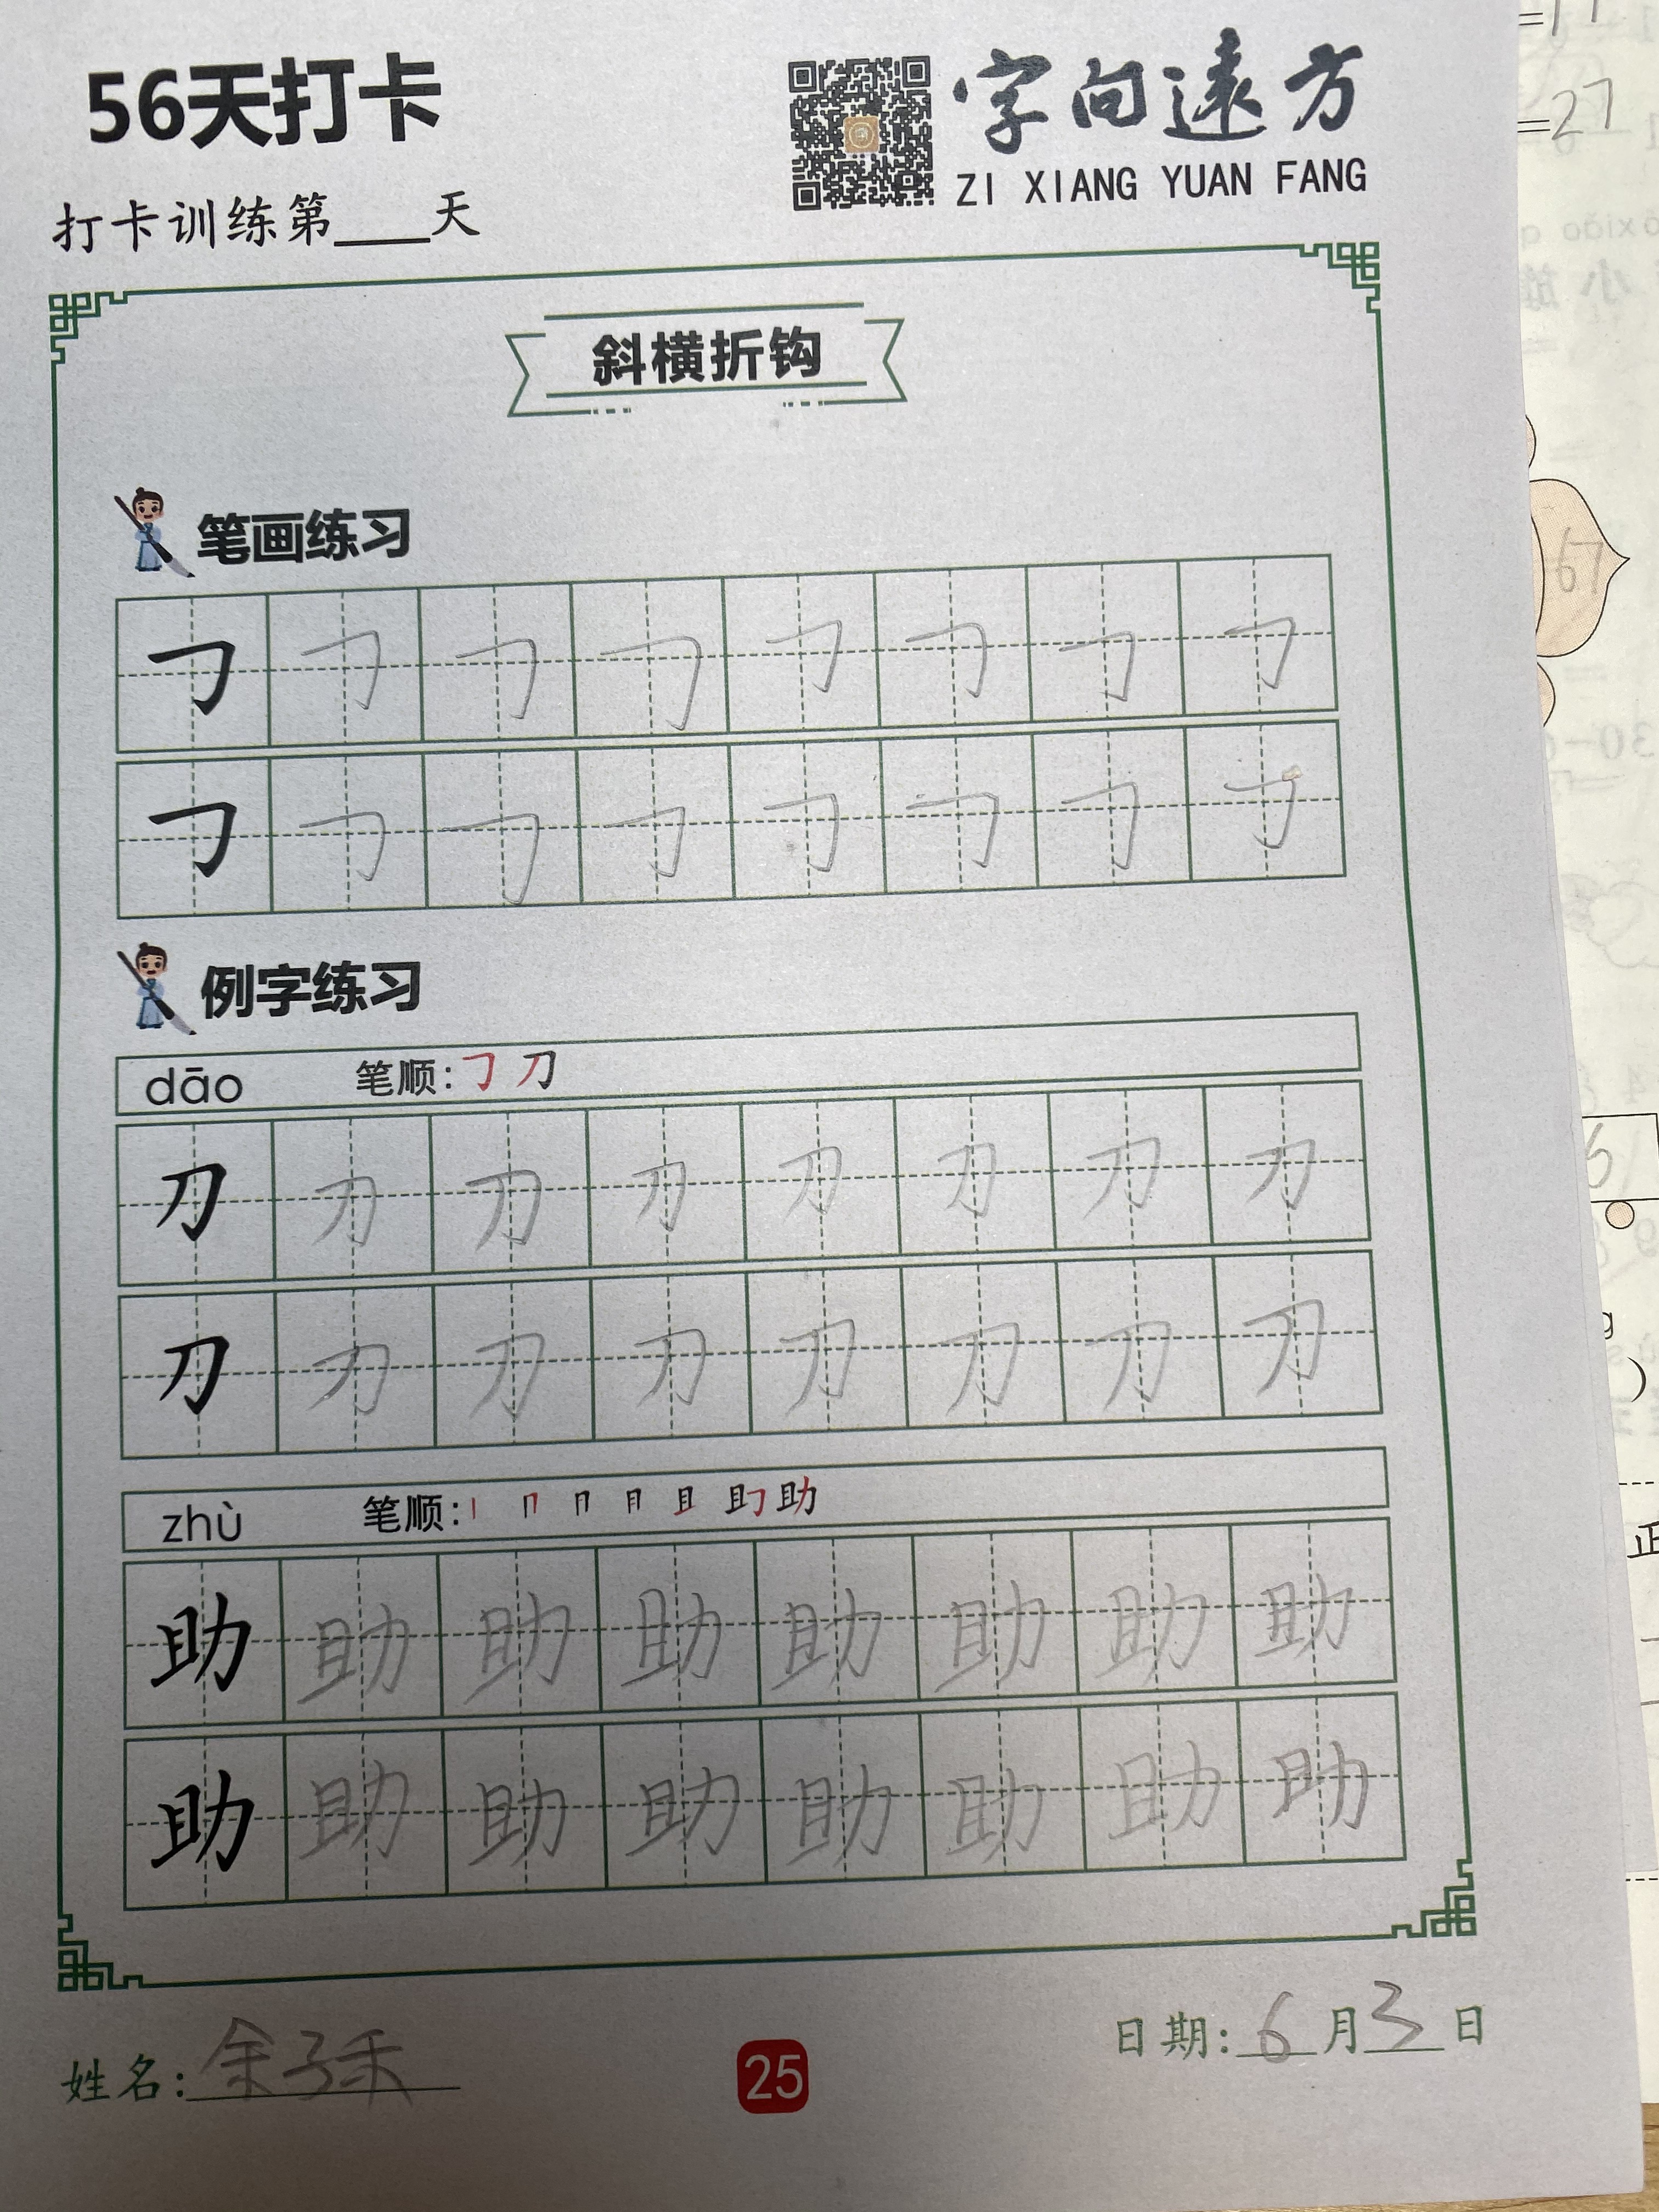 56天打卡
字向遠方
ZI XIANG YUAN FANG
打卡训练第____天
斜横折钩
笔画练习
㇆ ㇆ ㇆ ㇆ ㇆ ㇆ ㇆ ㇆
㇆ ㇆ ㇆ ㇆ ㇆ ㇆ ㇆ ㇆
例字练习
dāo 笔顺:㇆ 刀
刀 刀 刀 刀 刀 刀 刀 刀
刀 刀 刀 刀 刀 刀 刀 刀
zhù 笔顺:丨 冂 助
助 助 助 助 助 助 助 助
助 助 助 助 助 助 助 助
姓名:余子禾
25
日期:6月3日
=27
67
30-
正